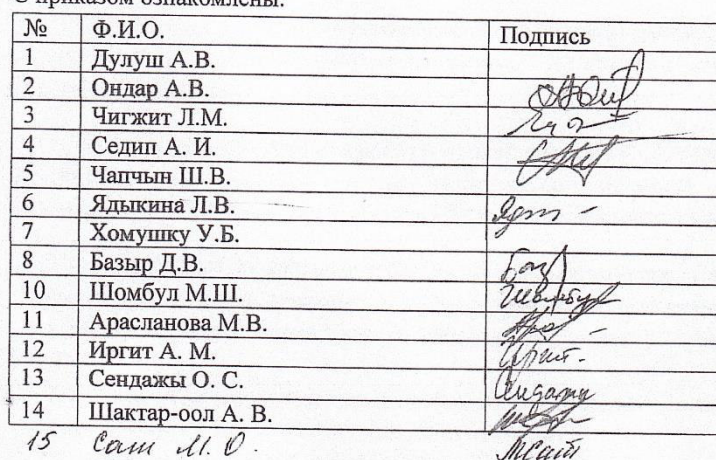 С приказом ознакомлены:
№ Ф.И.О. Подпись
1 Дулуш А.В.
2 Ондар А.В.
3 Чигжит Л.М.
4 Седип А. И.
5 Чапчын Ш.В.
6 Ядыкина Л.В.
7 Хомушку У.Б.
8 Базыр Д.В.
10 Шомбул М.Ш.
11 Арасланова М.В.
12 Иргит А. М. Иргит.
13 Сендажы О. С.
14 Шактар-оол А. В.
15 Сат М. О.